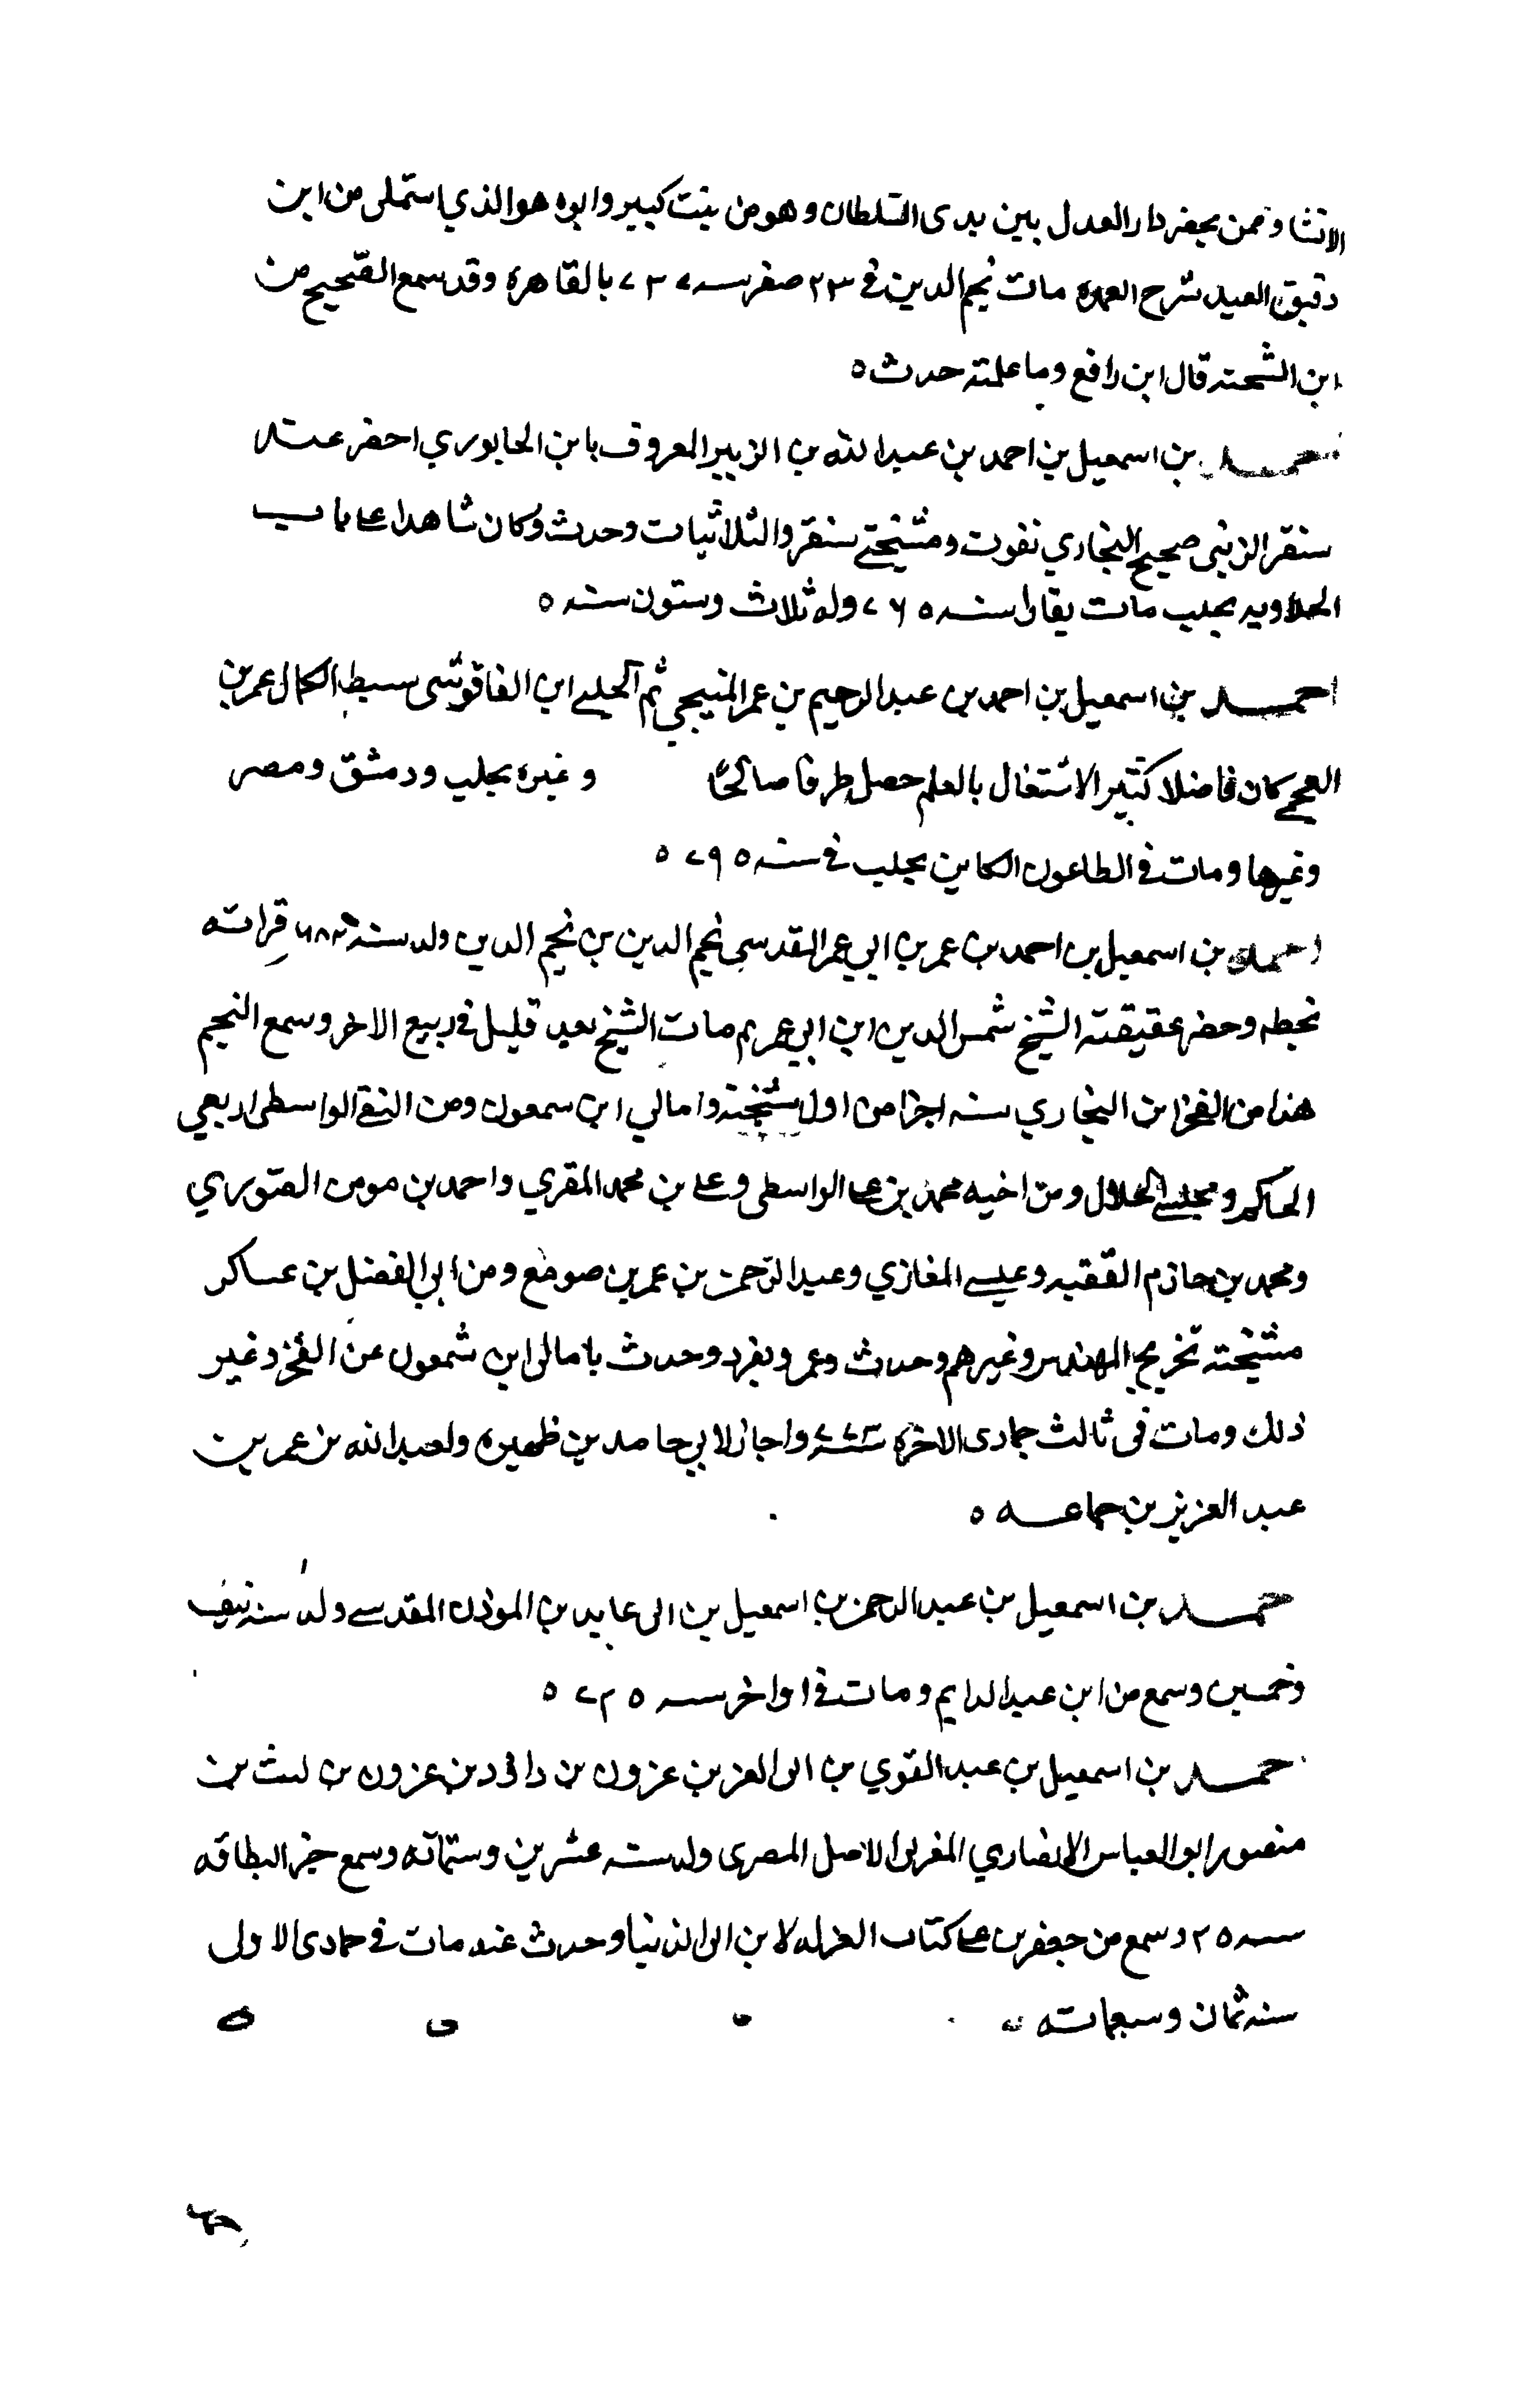 الانشا وممن يحضر دار العدل بين يدى السلطان وهو من بيت كبير وابوه هو الذي استملى من ابن
دقيق العيد شرح العمدة مات نجم الدين في ٢٣ صفر سنه ٧٣٧ بالقاهرة وقد سمع الصحيح من
ابن الشحنه قال ابن رافع وما علمته حدث ٥
احمد بن اسمعيل بن احمد بن عبد الله بن الزبير المعروف بابن الخابوري احضر عند
سنقر الزينى صحيح البخاري بفوت ومشيخة سنقر والثلاثيات وحدث وكان شاهدا على باب
الحلاويه بحلب مات بها سنه ٧٦٥ وله ثلاث وستون سنه ٥
احمد بن اسمعيل بن احمد بن عبد الرحيم بن عمر المنبجي ثم الحلبي ابن الفاقوسى سبط الكمال عمر بن
العجمي كان فاضلا كثير الاشتغال بالعلم حصل طرفا صالحا وغيره بحلب ودمشق ومصر
وغيرها ومات في الطاعون الكاين بحلب في سنه ٧٩٥ ٥
احمد بن اسمعيل بن احمد بن عمر بن ابي عمر المقدسي نجم الدين بن نجم الدين ولد سنه ٦٨٢ قراته
بخطه وحضر عقيقته الشيخ شمس الدين ابن ابي عمر ثم مات الشيخ بعيد قليل في ربيع الاخر وسمع النجم
هذا من الفخر ابن البخاري سته اجزا من اول مشيخته وامالي ابن سمعون ومن التقي الواسطى اربعي
الحاكم ومجلسي الخلال ومن اخيه محمد بن على الواسطى وعلي بن محمد المقري واحمد بن مومن الصوري
ومحمد بن حازم الفقيه وعيسى المغازي وعبد الرحمن بن عمر بن صومع ومن ابي الفضل بن عساكر
مشيخته تخريج المهندس وغيرهم وحدث وعمر وتفرد وحدث بامالى ابن شمعون عن الفخر وغير
ذلك ومات في ثالث جمادى الاخرة سنة ٧٧٣ واجاز لابي حامد بن ظهيره ولعبد الله بن عمر بن
عبد العزيز بن جماعه ٥
احمد بن اسمعيل بن عبد الرحمن بن اسمعيل بن ابى عابد بن الموذن المقدسي ولد سنه نيف
وخمسين وسمع من ابن عبد الدايم ومات في اواخر سنه ٧٢٥ ٥
احمد بن اسمعيل بن عبد القوي بن ابى العز بن عزون بن داود بن عزون بن ليث بن
منصور ابو العباس الانصاري المغربى الاصل المصرى ولد سنه عشرين وستمائه وسمع جزء البطاقه
سنه ٢٥ وسمع من جعفر بن على كتاب العزله لابن ابى الدنيا وحدث عنه مات في جمادى الاولى
سنه ثمان وسبعمائه ٥ ٥ ٥ ٥